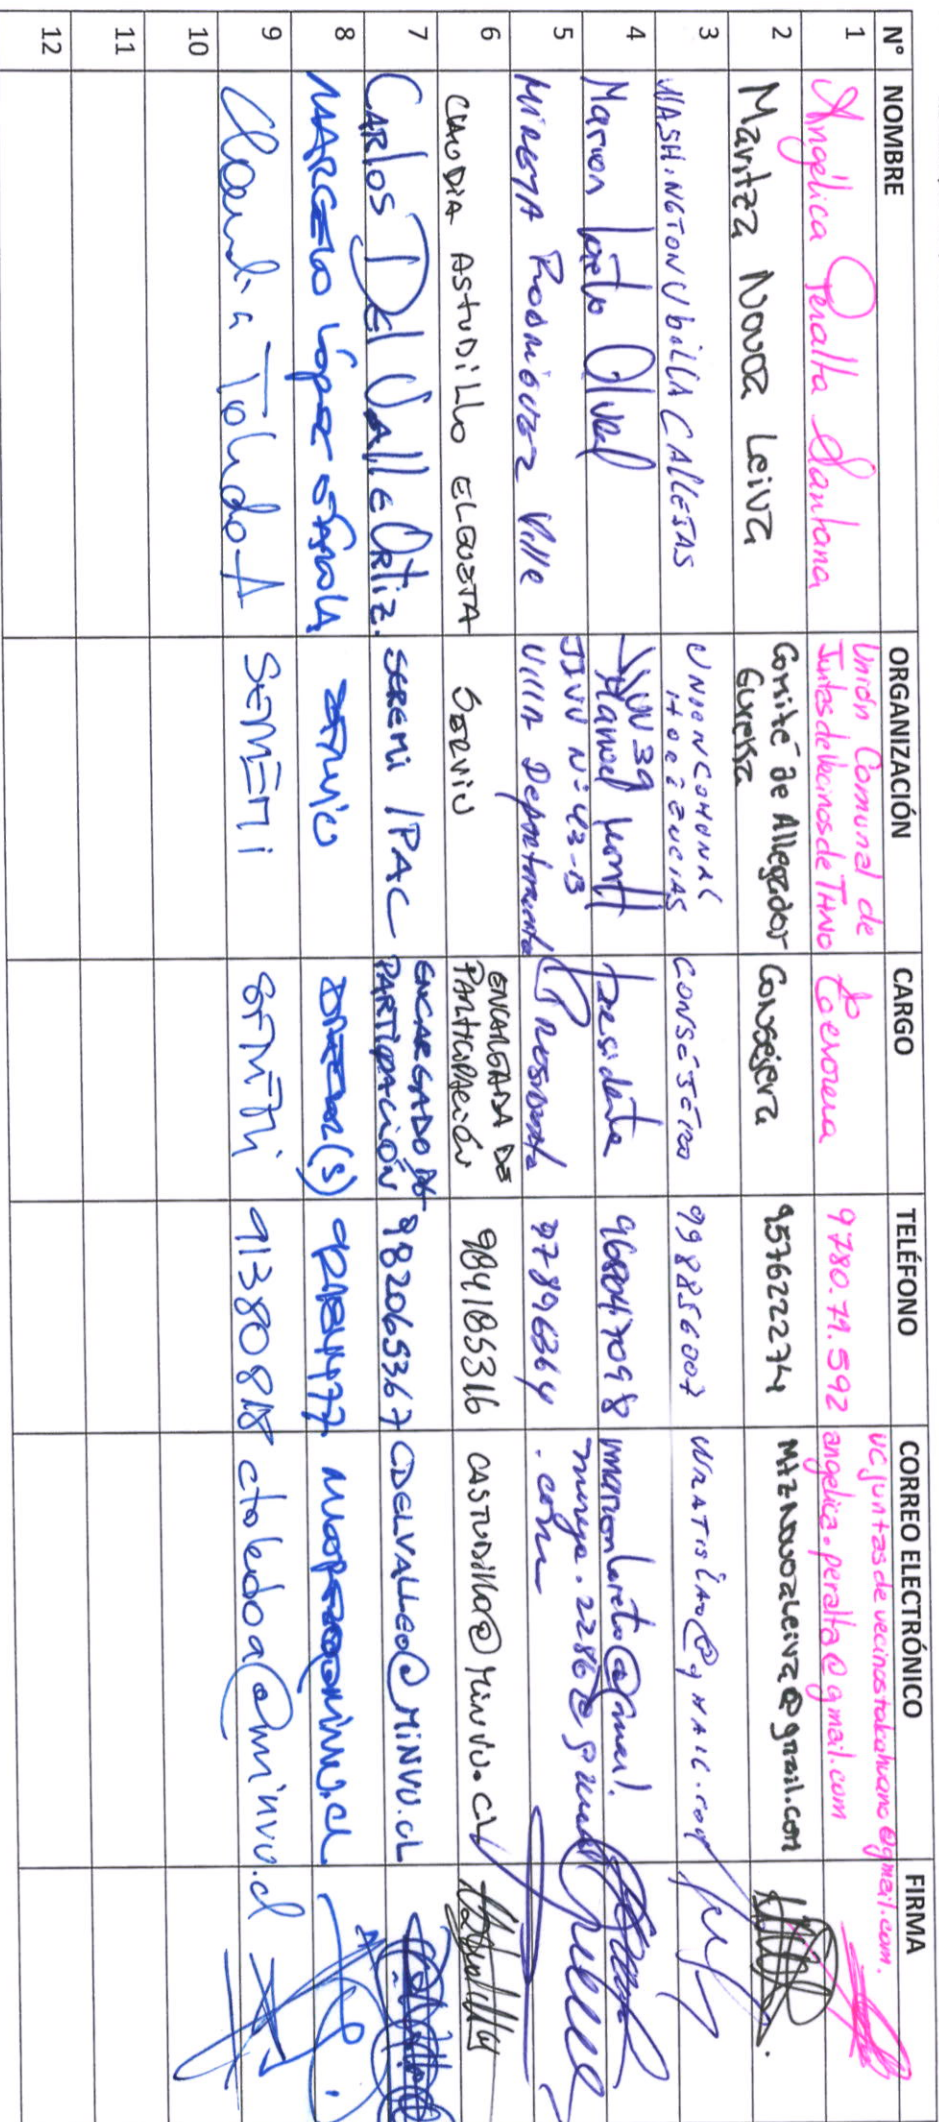 N° NOMBRE ORGANIZACIÓN CARGO TELÉFONO CORREO ELECTRÓNICO FIRMA
1 Angélica Peralta Santana Unión Comunal de Juntas de Vecinos de THNO 9780.79.592 ucjuntasdevecinostalcahuano@gmail.com. angelica.peralta@gmail.com
2 Maritza Novoa Leiva Comité de Allegados Eureka Consejera 957622274 MAZNovoaleiva@gmail.com
3 WASHINGTON UbillA CAllEJAS UNION COMUNAL CONSEJERO 998856007
4 Marion Loreto JJVV 39 Manuel Montt Presidenta 968047098 marionloreto@gmail.
5 MIREYA Rodríguez Ville JJVV N° 43-B Villa Departamental 77896364 mireya.2286@gmail .com
6 CLAUDIA ASTUDILLO ELGUETA SERVIU ENCARGADA DE PARTICIPACIÓN 984185316 CASTUDILLO@MINVU.CL
7 CARlos DEl VAllE ORtiz. SEREMI /PAC ENCARGADO DE PARTIPACIÓN 982065367 CDELVALLEO@MINVU.CL
8 MARCELO López
9 Claudia Toledo A SEREMI SEREMI 91380818 ctoledoa@minvu.cl
10
11
12